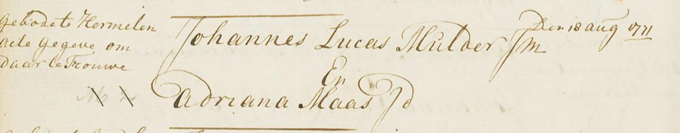 gebode te Hermelen
acte gegeve om
daar te Trouwe
Johannes Lucas Mulder Jm
Den 18 aug 1771
En
Adriana Maas Jd